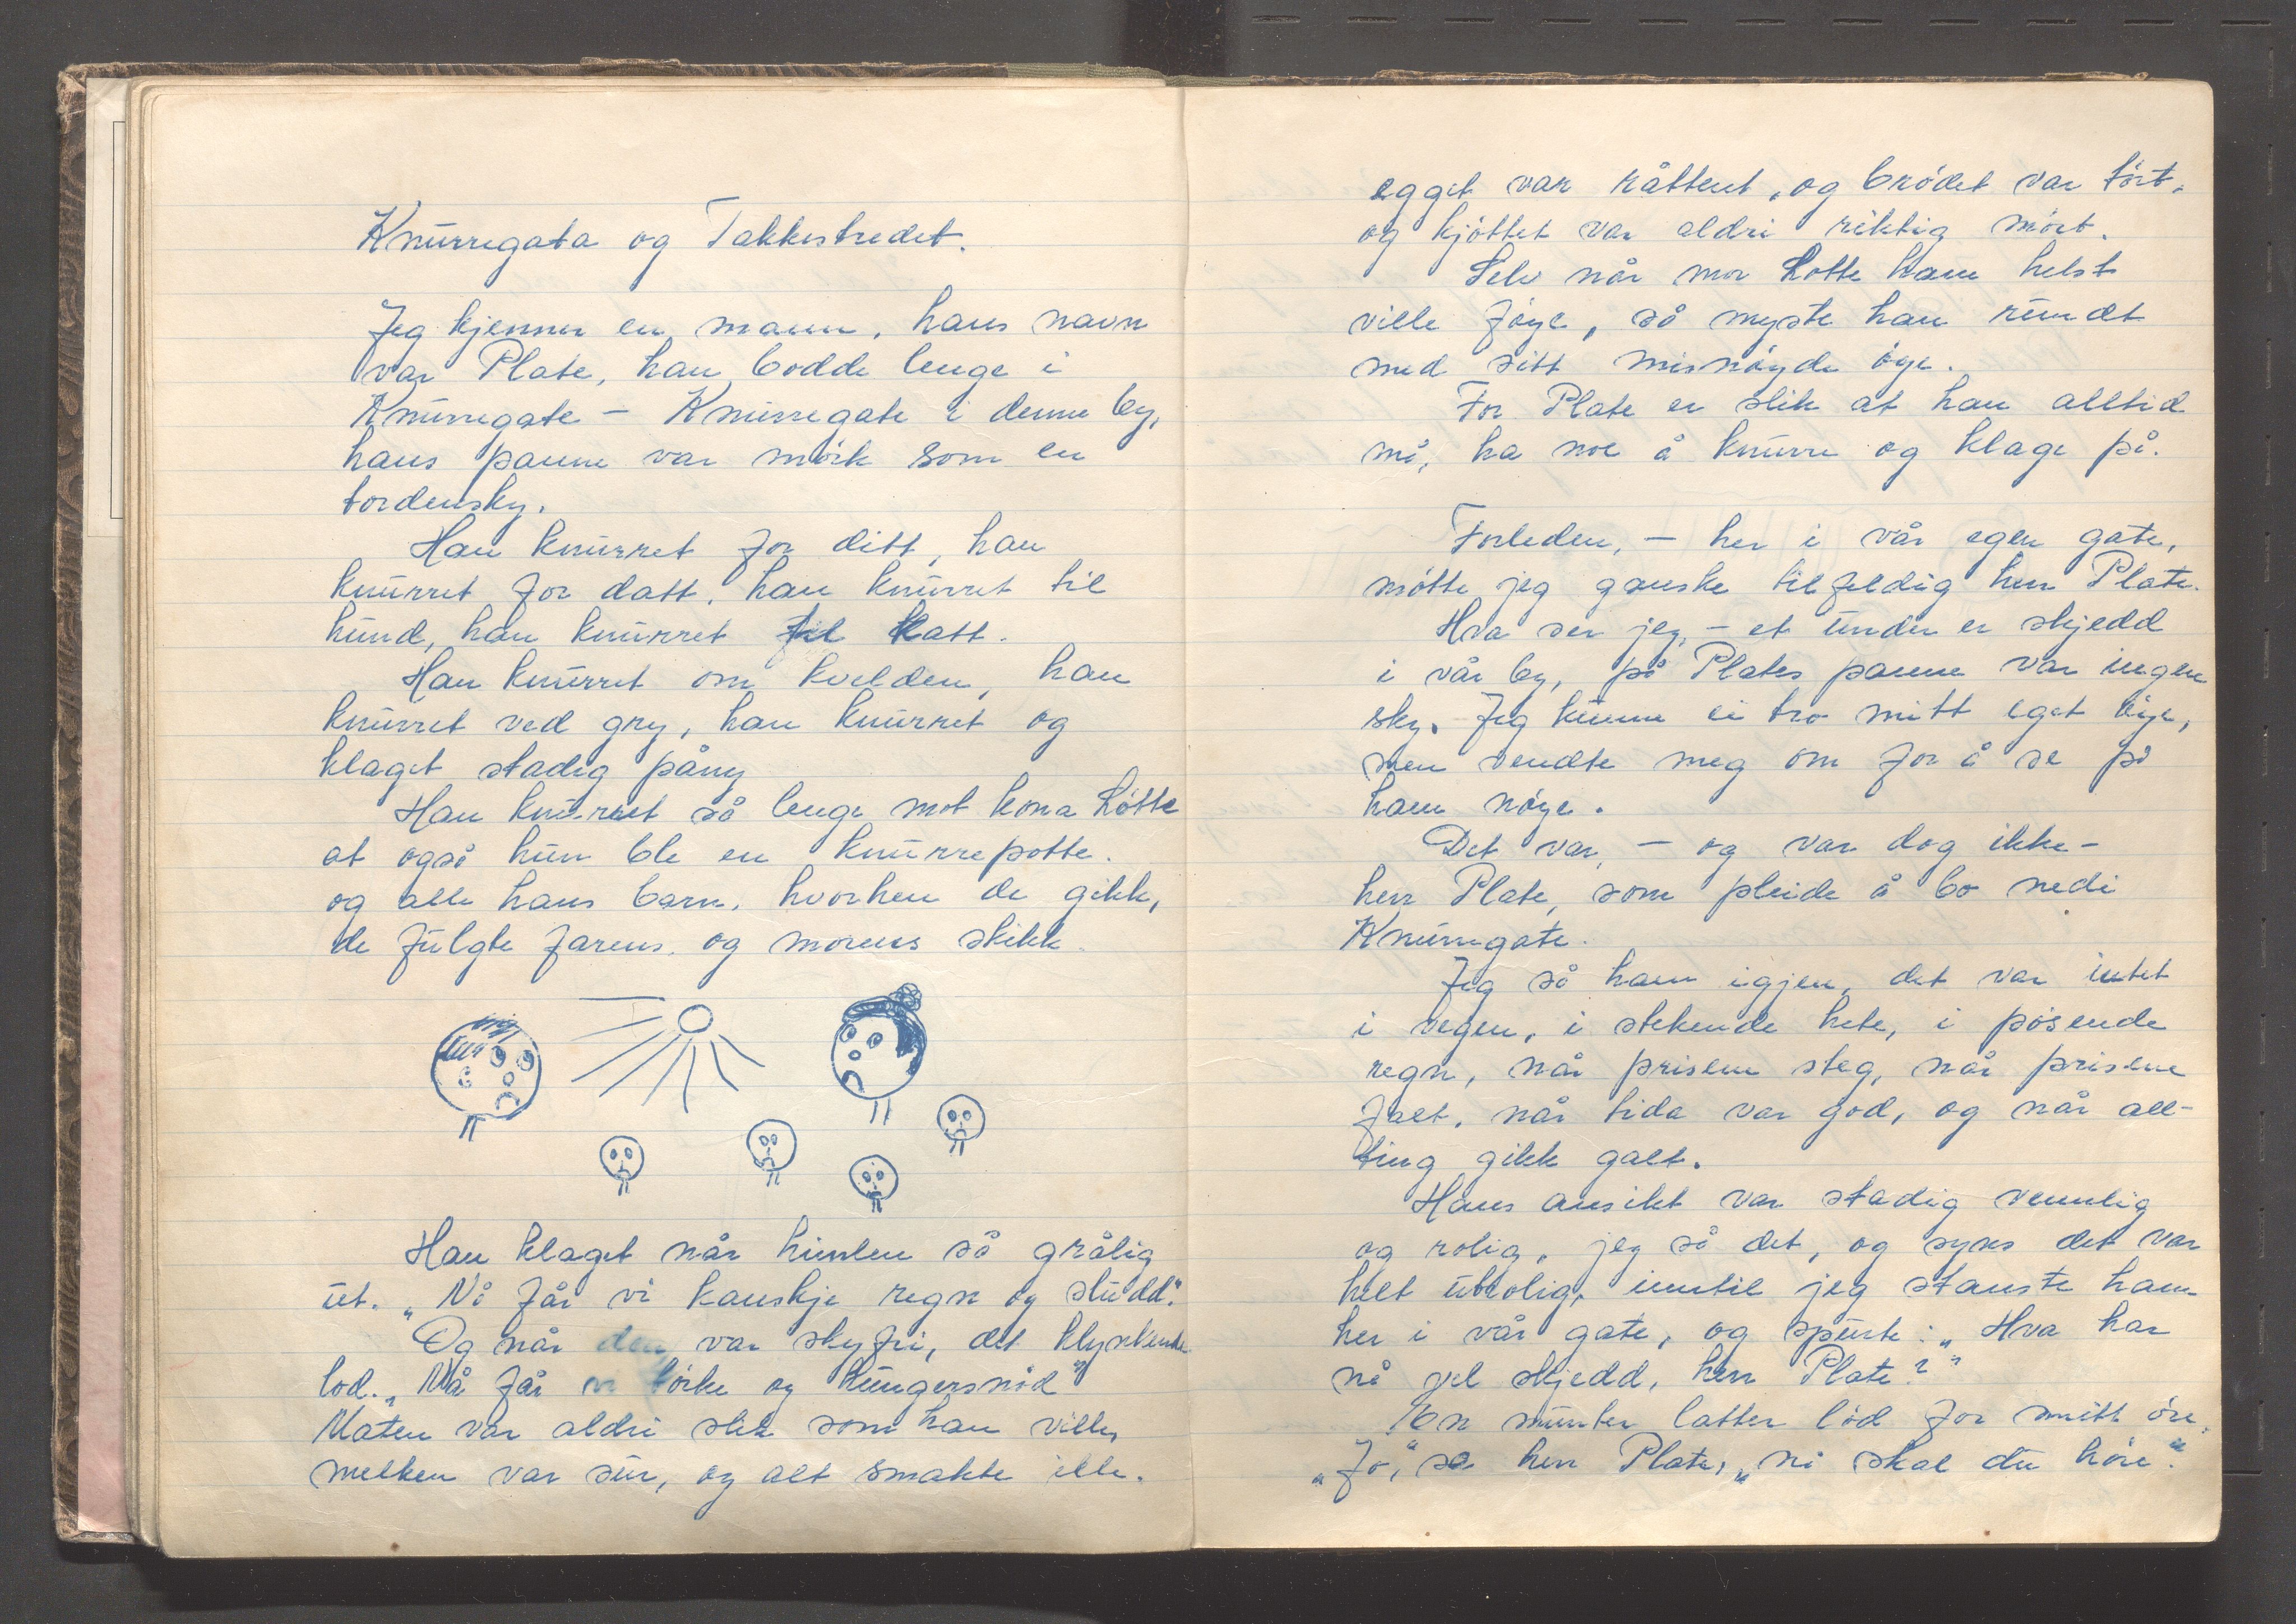 Knurregata og Takkestredet.
Jeg kjenner en mann, hans navn
var Plate, han bodde lenge i
Knurregate - Knurregate i denne by,
hans panne var mörk som en
tordensky.
Han knurret for ditt, han
knurret for datt, han knurret til
hund, han knurret til katt.
Han knurret om kvelden, han
knurret ved gry, han knurret og
klaget stadig påny
Han knurret så lenge mot kona Lotte
at også hun ble en knurrepotte.
og alle hans barn, hvorhen de gikk,
de fulgte farens, og morens skikk.
Han klaget når himlen så grålig
ut. „Nå får vi kanskje regn og sludd."
Og når den var skyfri, det klynkende
lod. „Nå får vi törke og hungersnöd"
Maten var aldri slik som han ville,
melken var sur, og alt smakte ille.
egget var råttent, og brödet var tört,
og kjöttet var aldri riktig mört.
Selv når mor Lotte ham helst
ville föye, så myste han rundt
med sitt misnöyde öye.
For Plate er slik at han alltid
må, ha noe å knurre og klage på.
Forleden, - her i vår egen gate,
mötte jeg ganske tilfeldig herr Plate.
Hva ser jeg, - et under er skjedd
i vår by, på Plates panne var ingen
sky. Jeg kunne ei tro mitt eget öye,
men vendte meg om for å se på
ham nöye.
Det var, - og var dog ikke -
herr Plate, som pleide å bo nedi
Knurregate.
Jeg så ham igjen, det var intet
i vegen, i stekende hete, i pösende
regn, når prisene steg, når prisene
falt, når tida var god, og når all-
ting gikk galt.
Hans ansikt var stadig vennlig
og rolig, jeg så det, og syns det var
helt utrolig, inntil jeg stanste ham
her i vår gate, og spurte: „Hva har
nå vel skjedd, herr Plate?"
En munter latter löd for mitt öre.
„Jo," sa herr Plate, „nå skal du höre".